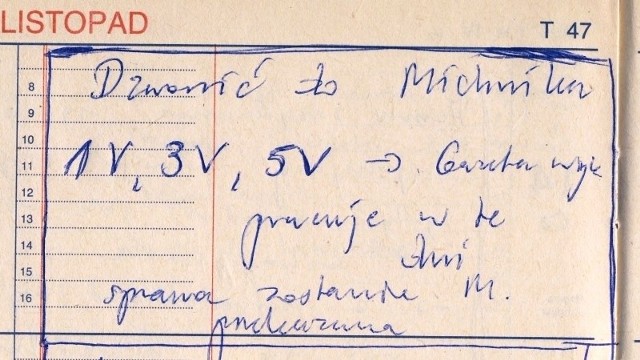 LISTOPAD
T 47
8
9
10
11
12
13
14
15
16
Dzwonić do Michnika
1V, 3V, 5V → Gazeta wyb
pracuje w te
dni
sprawa zostanie M.
przekazana